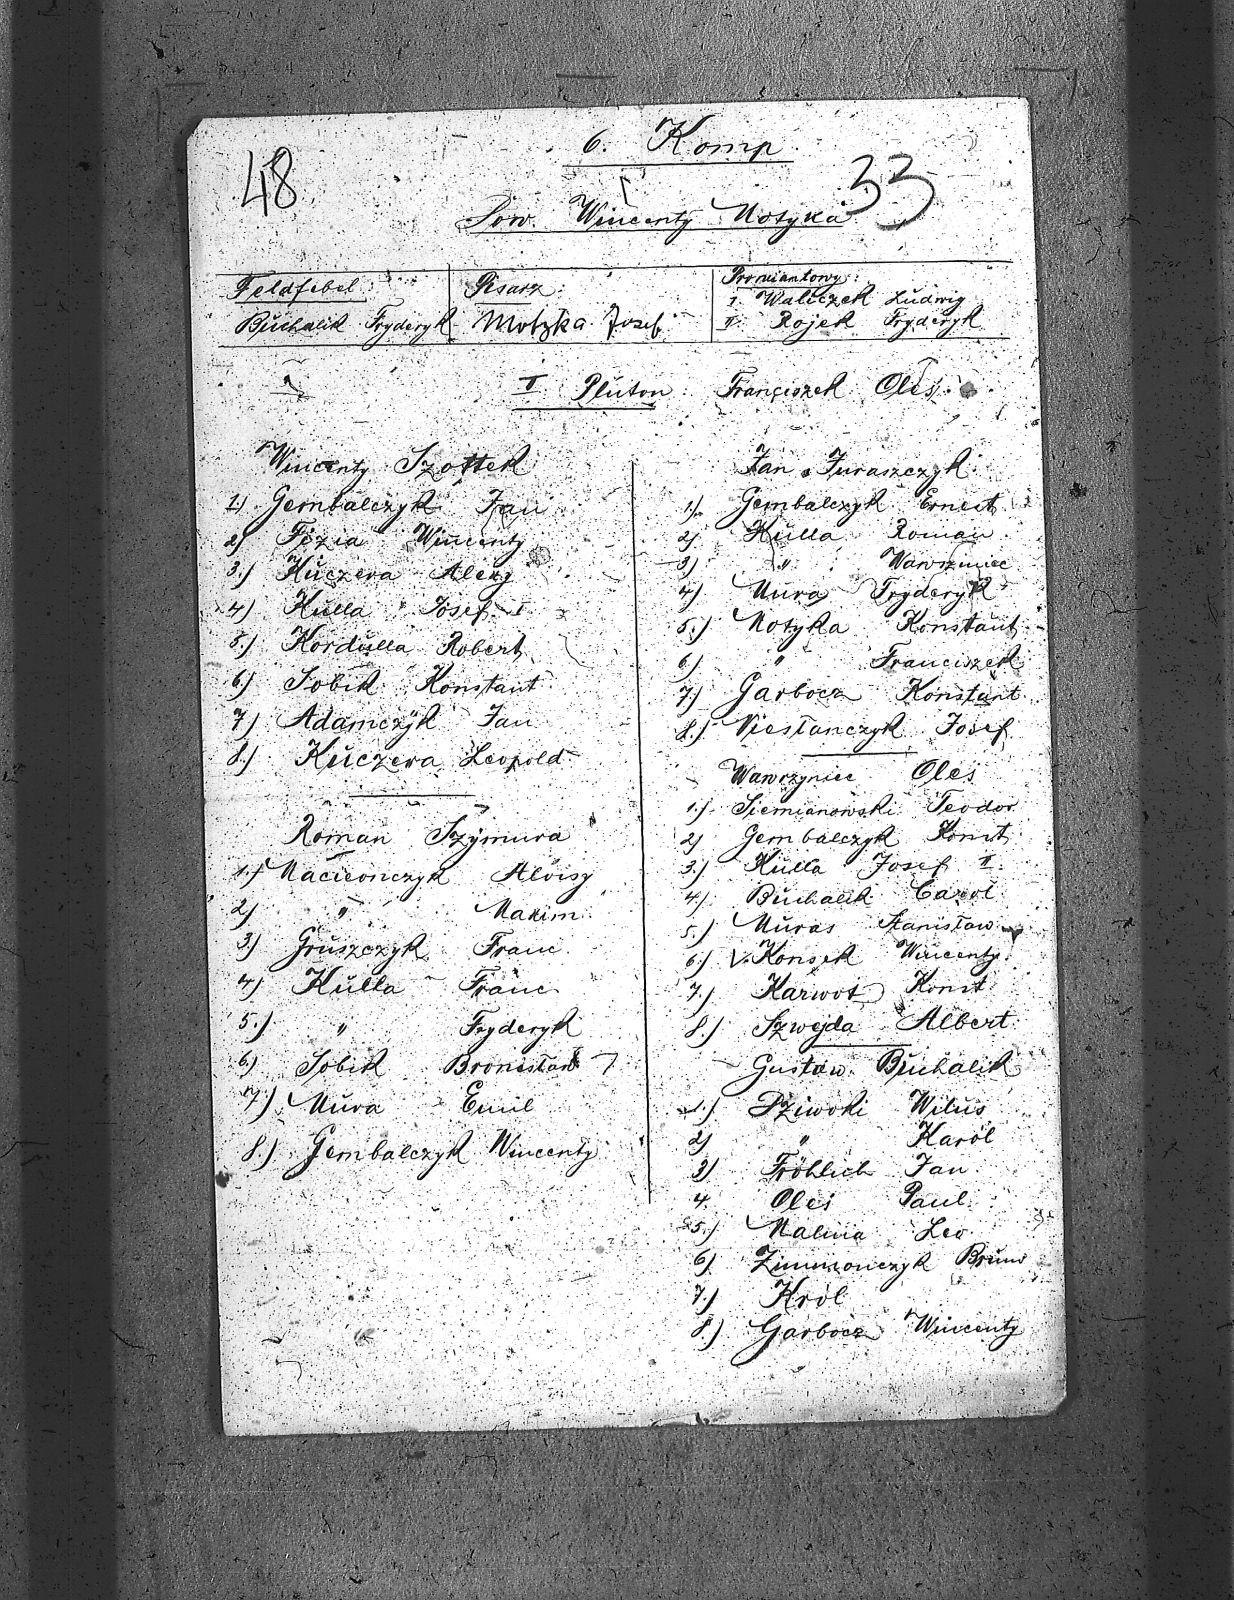 6. Komp
48
33
Pow. Wincenty Motyka
Feldfebel:
Buchalik Fryderyk
Pisarz:
Motzka Josef
Prowiantowy:
I. Waliczek Ludwig
II. Rojek Fryderyk
I Pluton Franciszek Oleś
Wincenty Szottek
1) Gembalczyk Jan
2) Fizia Wincenty
3.) Kuczera Alexy
4) Kulla Josef I
5.) Kordulla Robert
6) Sobik Konstant
7) Adamczyk Jan
8.) Kuczera Leopold
Roman Szymura
1.) Macionczyk Aloisy
2) " Maxim
3) Gruszczyk Franc
4) Kulla Franc
5.) " Fryderyk
6) Sobik Bronisław
7) Mura Emil
8.) Gembalczyk Wincenty
Jan Juraszczyk
1) Gembalczyk Ernest
2) Kulla Roman
3) " Wawrziniec
4) Mura Fryderyk
5.) Motyka Konstant
6) " Franciszek
7.) Garbocz Konstant
8.) Viestanczyk Josef
Wawrzyniec Oleś
1.) Siemianowski Teodor
2) Gembalczyk Konst
3.) Kulla Josef II
4.) Buchalik Carol
5.) Muras Stanisław
6) Konsek Wincenty
7.) Karwot Konst
8.) Szwejda Albert
Gustaw Buchalik
1.) Dziwoki Wilus
2) " Karol
3) Fröhlich Jan
4. Oleś Paul
5.) Malina Leo
6) Zimmonczyk Bruno
7.) Król
8.) Garbocz Wincenty